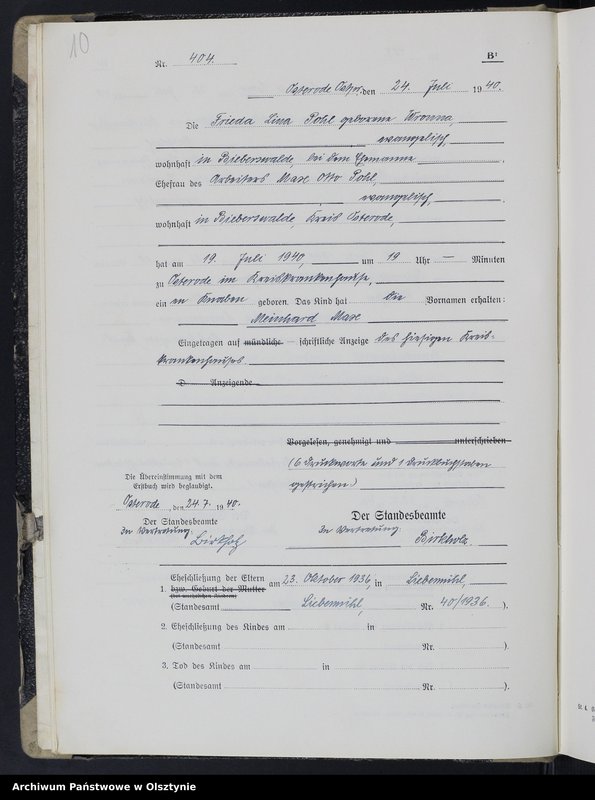 10
Nr. 404. B¹
Osterode Ostpr., den 24. Juli 1940.
Die Frieda Lina Pohl geborene Wronna,
evangelisch,
wohnhaft in Bieberswalde bei dem Ehemanne
Ehefrau des Arbeiters Max Otto Pohl,
evangelisch,
wohnhaft in Bieberswalde, Kreis Osterode,
hat am 19. Juli 1940, um 19 Uhr — Minuten
zu Osterode im Kreiskrankenhause,
einen Knaben geboren. Das Kind hat die Vornamen erhalten:
Meinhard Max
Eingetragen auf mündliche – schriftliche Anzeige des hiesigen Kreis-
krankenhauses.
D Anzeigende
Vorgelesen, genehmigt und unterschrieben
(6 Druckworte und 1 Druckbuchstaben
gestrichen)
Die Übereinstimmung mit dem
Erstbuch wird beglaubigt.
Osterode, den 24.7. 1940.
Der Standesbeamte
In Vertretung:
Birkholz
Der Standesbeamte
In Vertretung:
Birkholz.
1. Eheschließung der Eltern am 23. Oktober 1936, in Liebemühl,
bzw. Geburt der Mutter
(bei unehelichen Kindern)
(Standesamt Liebemühl, Nr. 40/1936. ).
2. Eheschließung des Kindes am in
(Standesamt Nr. ).
3. Tod des Kindes am in
(Standesamt Nr. ).
Archiwum Państwowe w Olsztynie